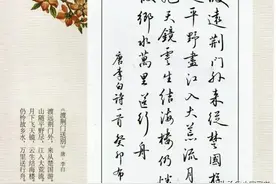 渡遠荆門外来從楚國遊
平野盡江入大荒流月
飛天鏡雲生結海樓仍憐
故鄉水萬里送行舟
唐李白詩一首癸卯布
《渡荆门送别》唐·李白
渡远荆门外,来从楚国游。
山随平野尽,江入大荒流。
月下飞天镜,云生结海楼。
仍怜故乡水,万里送行舟。